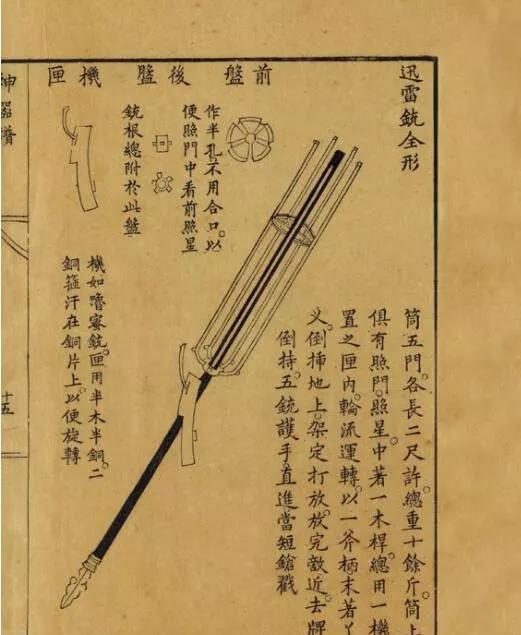 迅雷銃全形
筒五門各長二尺許總重十餘斤筒上
俱有照門照星中著一木桿總用一機
置之匣內輪流運轉以一斧柄末著丫
义倒插地上架定打放放完敵近去牌
倒持五銃護手直進當短鎗戳
前盤
後盤
機匣
作半孔不用合口以
便照門中看前照星
銃根總附於此盤
機如嚕密銃匣用半木半銅二
銅箍汗在銅片上以便旋轉
神器譜
十五